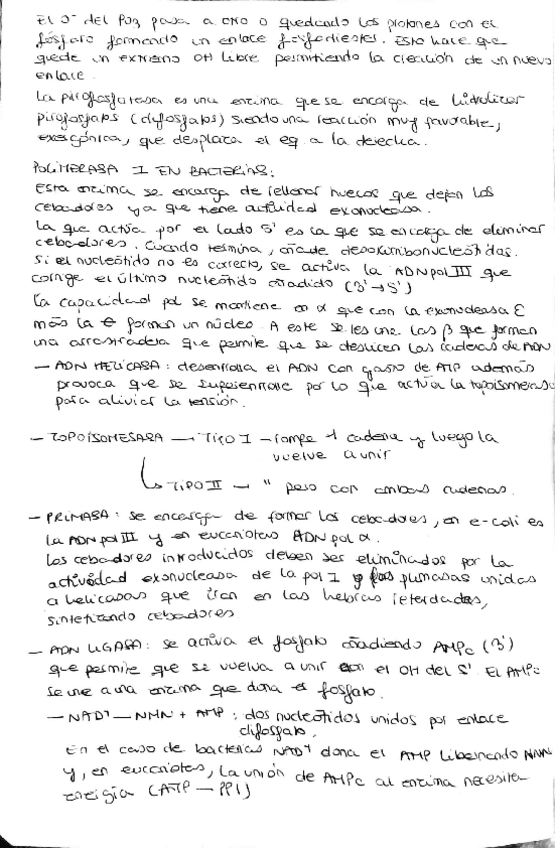 El 3' del Pα, pasa a OH o quedando los protones con el
fósforo formando un enlace fosfodiester. Esto hace que
quede un extremo OH libre permitiendo la creación de un nuevo
enlace.
La pirofosfatasa es una enzima que se encarga de hidrolizar
pirofosfatos (difosfatos) siendo una reacción muy favorable,
exergónica, que desplaza el eq a la derecha.
POLIMERASA I EN BACTERIAS:
Esta enzima se encarga de rellenar huecos que dejan los
cebadores ya que tiene actividad exonucleasa.
La que actúa por el lado 5' es la que se encarga de eliminar
cebadores. Cuando termina, añade desoxirribonucleótidos.
Si el nucleótido no es correcto, se activa la ADNpol III que
corrige el último nucleótido añadido (3'→5')
La capacidad pol se mantiene en α que con la exonucleasa ε
más la θ forman un núcleo. A este se les une las β que forman
una arrastradera que permite que se deslicen las cadenas de ADN
— ADN HELICASA: desenrolla el ADN con gasto de ATP además
provoca que se superenrolle por lo que actúa la topoisomerasa
para aliviar la tensión.
— TOPOISOMESARA → TIPO I — rompe 1 cadena y luego la
vuelve a unir
↳ TIPO II — " pero con ambas cadenas.
— PRIMASA: se encarga de formar los cebadores, en e-coli es
la ADNpol III y en eucariotas ADN pol α.
Los cebadores introducidos deben ser eliminados por la
actividad exonucleasa de la pol I y primasas unidas
a helicasas que iran en las hebras retardadas,
sintetizando cebadores
— ADN LIGASA: se activa el fosfato añadiendo AMPc (3')
que permite que se vuelva a unir con el OH del 5'. El AMPc
se une a una enzima que dona el fosfato.
— NAD⁺ — NMN + AMP: dos nucleótidos unidos por enlace
difosfato.
En el caso de bacterias NAD⁺ dona el AMP liberando NMN
y, en eucariotas, la unión de AMPc al enzima necesita
energía (ATP — PPi)